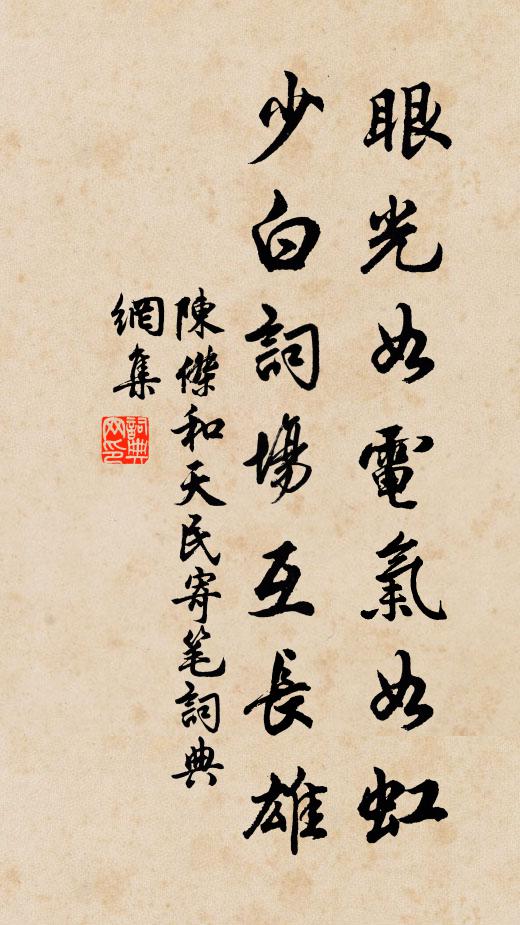 眼光如電氣如虹
少白詞場互長雄
陳傑和天民寄笔詞典
網集
詞典
网印